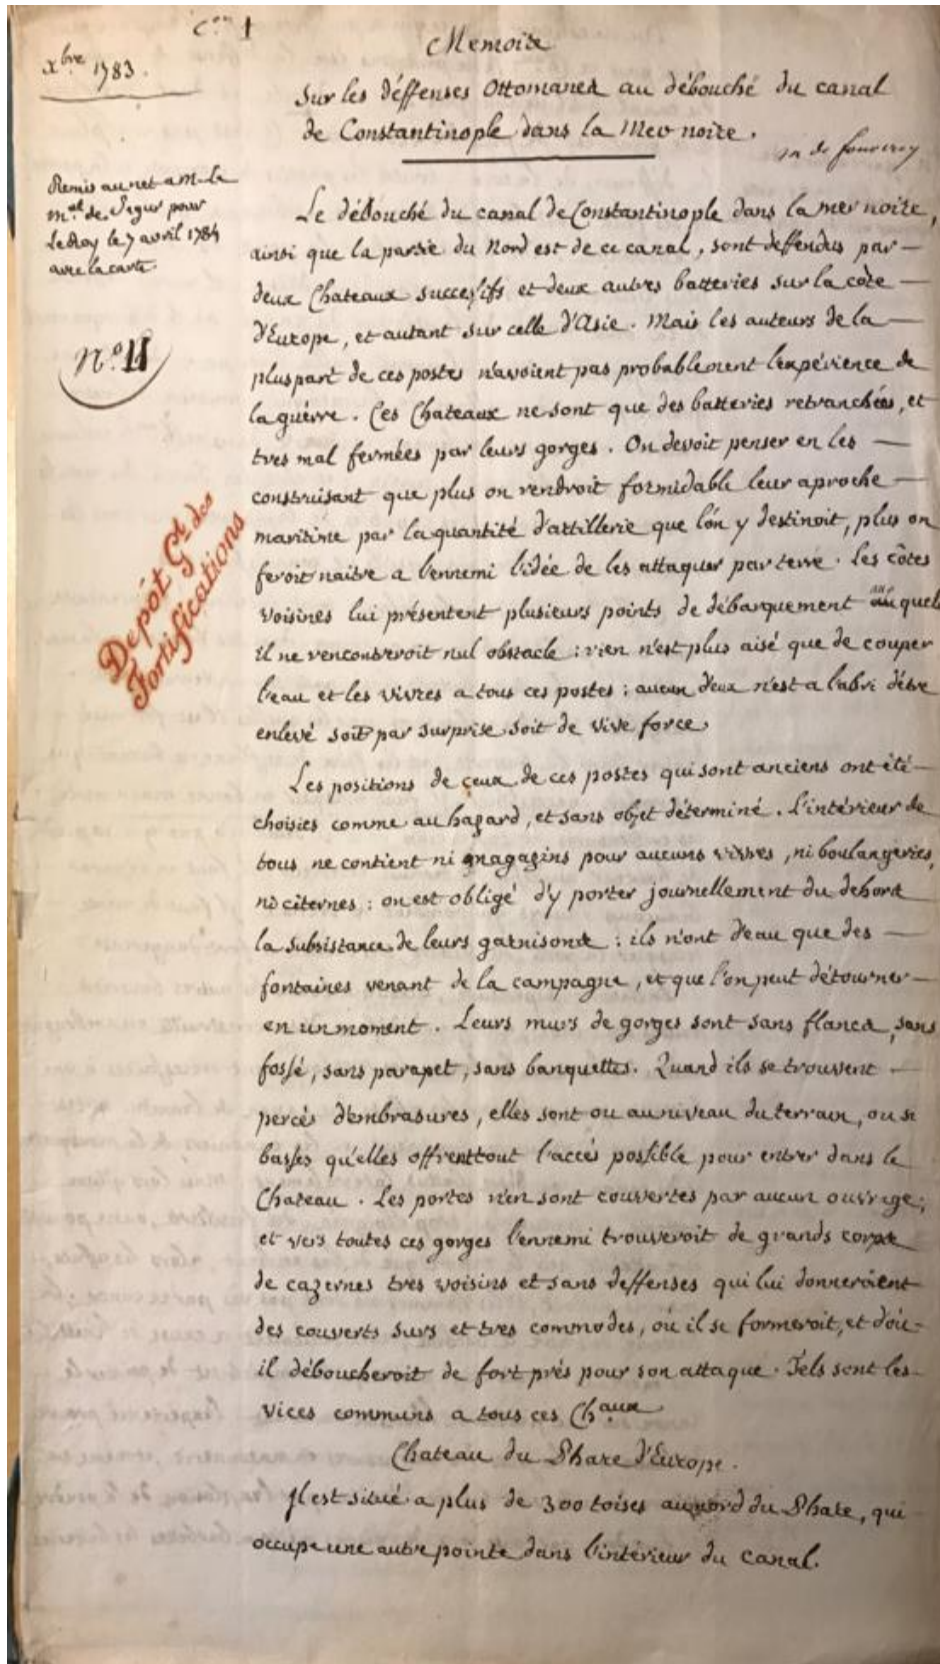 C.on 1
Xbre 1783.
Memoire
Sur les déffenses Ottomanes au débouché du canal
de Constantinople dans la Mer noire.
m de fourcroy
Remis au net a M. le
mal de Segur pour
Le Roy le 7 avril 1784
avec la carte.
N.º 11
Depôt Gal des
Fortifications
Le débouché du canal de Constantinople dans la mer noire,
ainsi que la partie du Nord est de ce canal, sont deffendus par —
deux Chateaux successifs et deux autres batteries sur la côte —
d'Europe, et autant sur celle d'Asie. Mais les auteurs de la —
pluspart de ces postes n'avoient pas probablement l'expérience de
la guérre. Ces Chateaux ne sont que des batteries retranchées, et
tres mal fermées par leurs gorges. On devoit penser en les —
construisant que plus on rendroit formidable leur aproche —
maritime par la quantité d'attillerie que l'on y destinoit, plus on
feroit naitre a l'ennemi l'idée de les attaquer par terre. Les côtes
voisines lui présentent plusieurs points de débarquement auquels
il ne rencontreroit nul obstacle : rien n'est plus aisé que de couper
l'eau et les vivres a tous ces postes ; aucun d'eux n'est a l'abri d'être
enlevé soit par surprise soit de vive force.
Les positions de ceux de ces postes qui sont anciens ont été —
choisies comme au hazard, et sans objet déterminé. L'intérieur de
tous ne contient ni magazins pour aucuns vivres, ni boulangeries,
ni citernes : on est obligé d'y porter journellement du dehors
la subsistance de leurs garnisons : ils n'ont d'eau que des —
fontaines venant de la campagne, et que l'on peut détourner —
en un moment. Leurs murs de gorges sont sans flancs, sans
fossé, sans parapet, sans banquettes. Quand ils se trouvent —
percés d'embrasures, elles sont ou au niveau du terrain, ou si
basses qu'elles offrent tout l'accés possible pour entrer dans le
Chateau. Les portes n'en sont couvertes par aucun ouvrage ;
et vers toutes ces gorges l'ennemi trouveroit de grands corps
de cazernes tres voisins et sans deffenses qui lui donneroient
des couverts surs et tres commodes, où il se formeroit, et d'où —
il déboucheroit de fort prés pour son attaque. Tels sont les
vices communs a tous ces Chaux
Chateau du Phare d'Europe.
Il est situé a plus de 300 toises au nord du Phare, qui
occupe une autre pointe dans l'intérieur du canal.